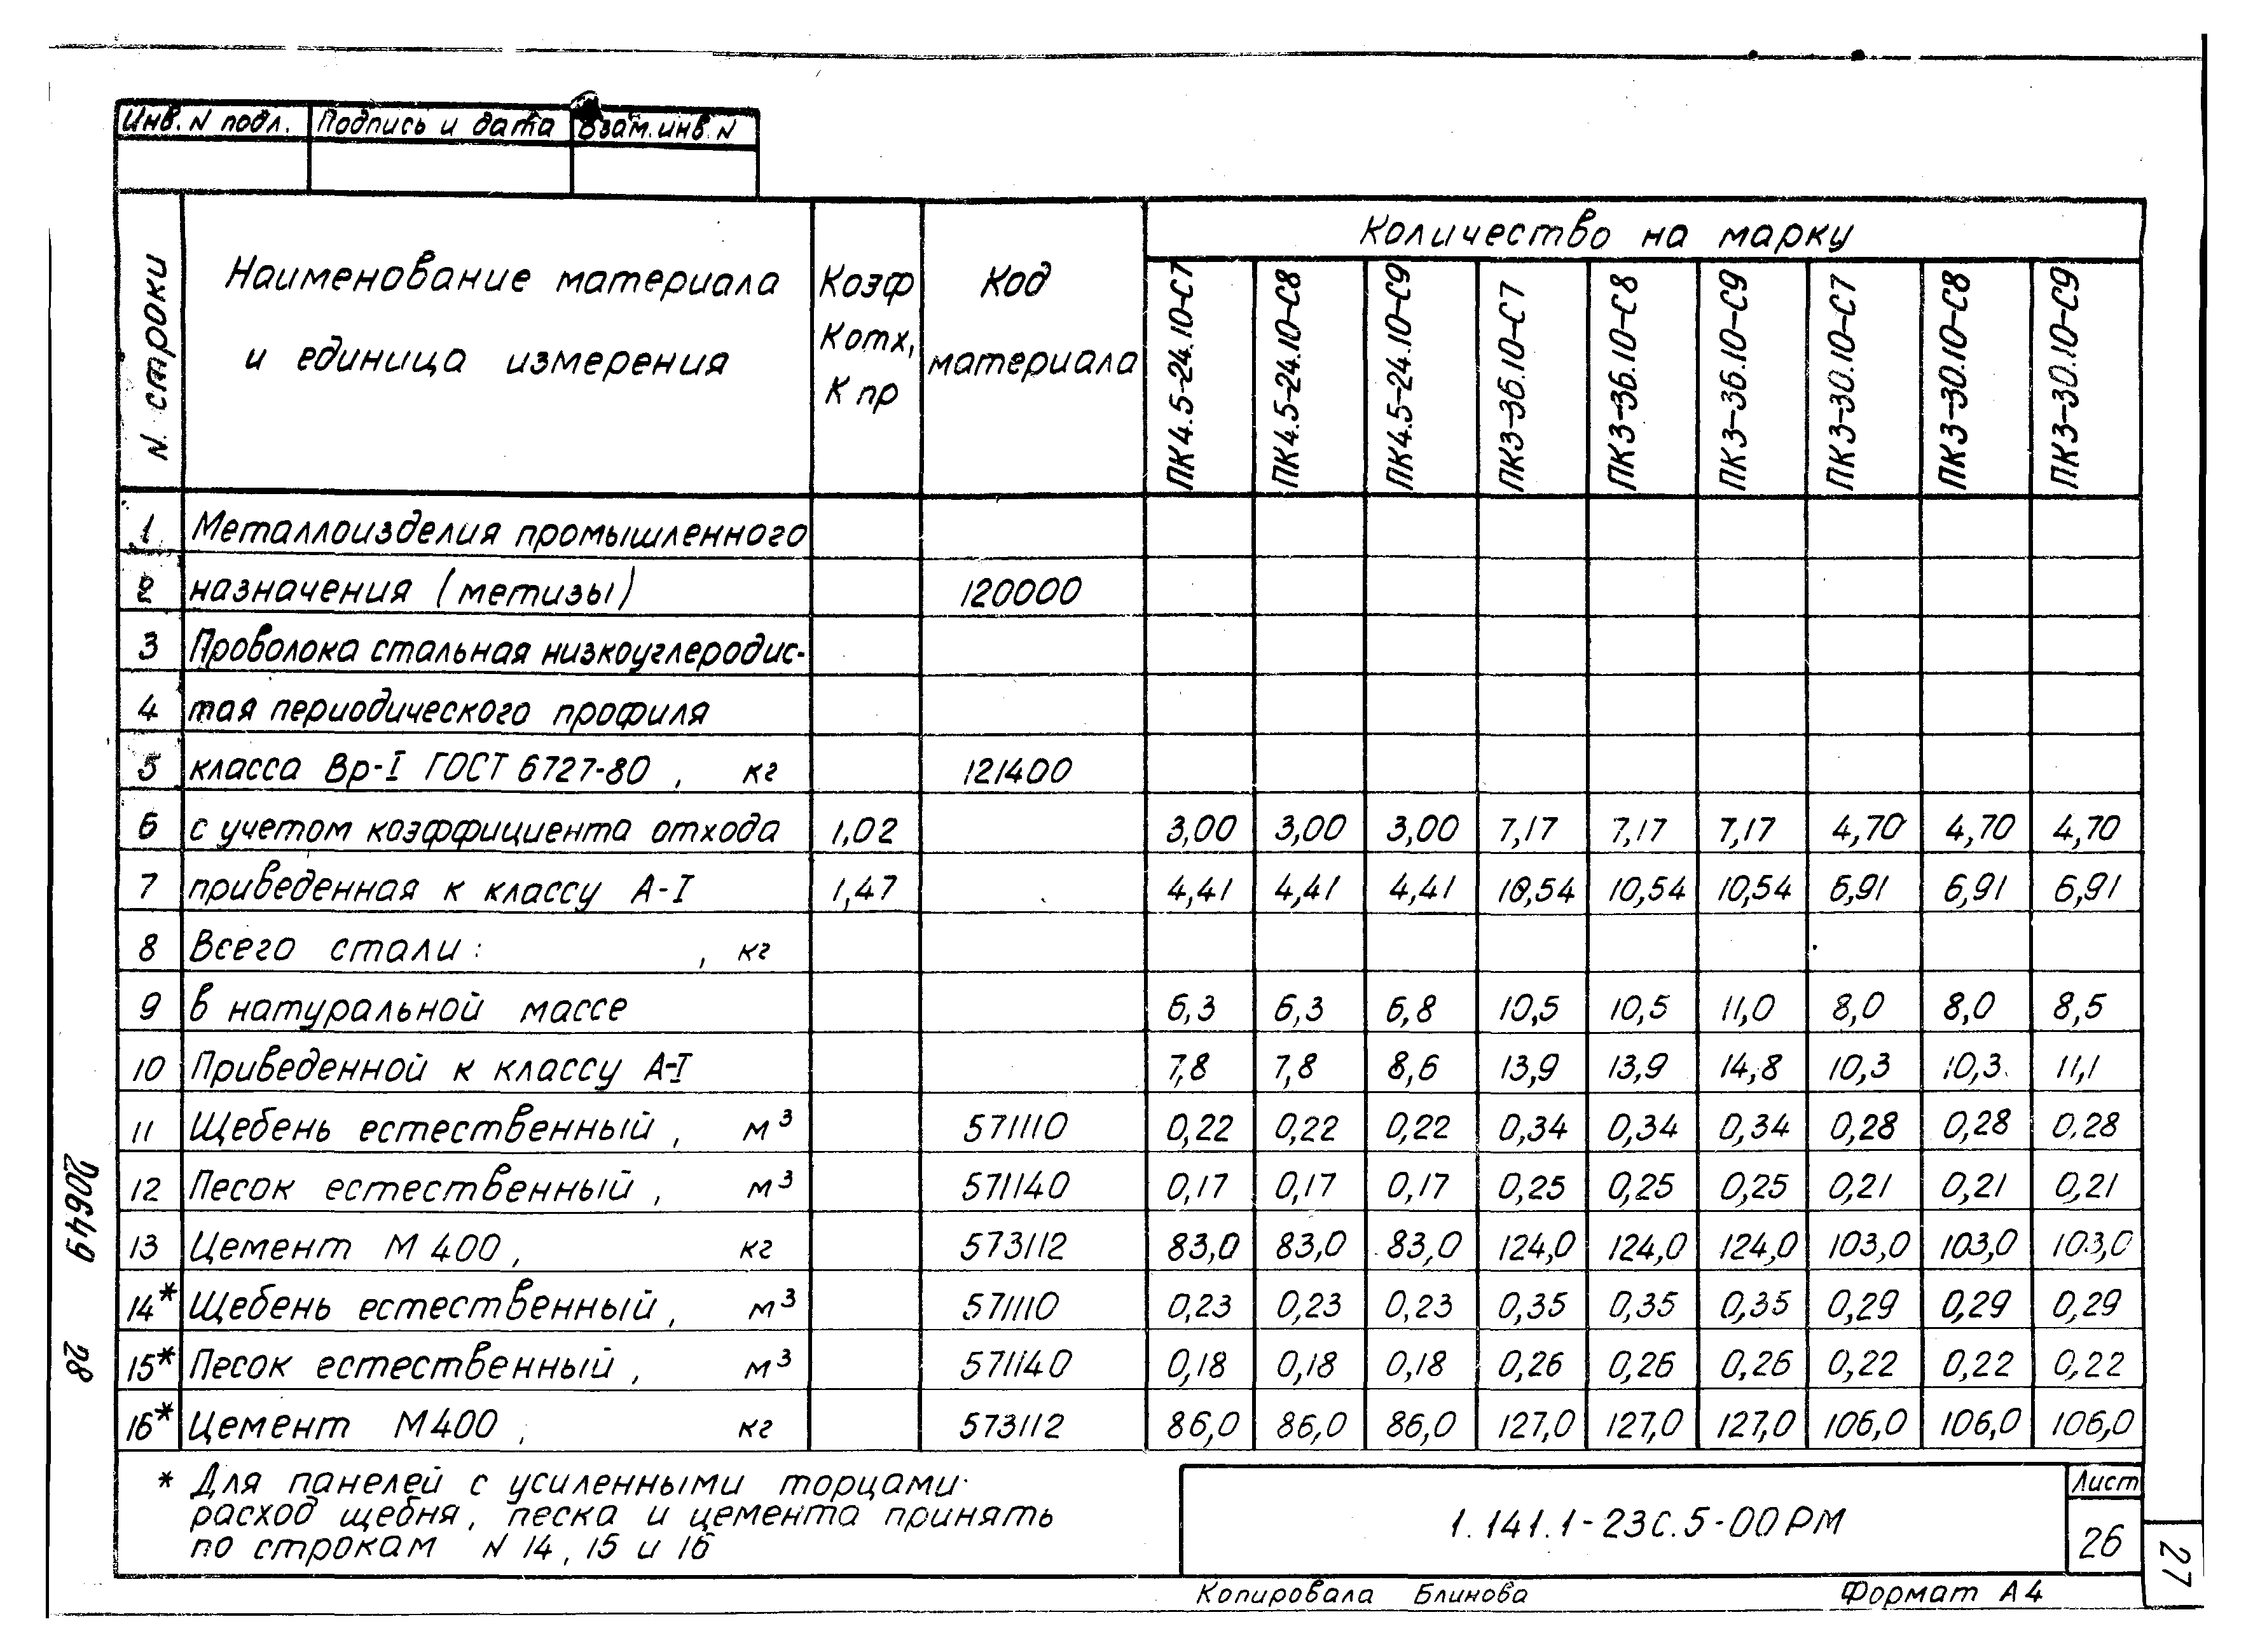 Инв. N подл. Подпись и дата Взам. инв. N
N строки
Наименование материала
и единица измерения
Коэф
Котх,
К пр
Код
материала
Количество на марку
ПК4.5-24.10-С7 ПК4.5-24.10-С8 ПК4.5-24.10-С9 ПК3-36.10-С7 ПК3-36.10-С8 ПК3-36.10-С9 ПК3-30.10-С7 ПК3-30.10-С8 ПК3-30.10-С9
1 Металлоизделия промышленного
2 назначения (метизы) 120000
3 Проволока стальная низкоуглеродис-
4 тая периодического профиля
5 класса Вр-I ГОСТ 6727-80, кг 121400
6 с учетом коэффициента отхода 1,02 3,00 3,00 3,00 7,17 7,17 7,17 4,70 4,70 4,70
7 приведенная к классу А-I 1,47 4,41 4,41 4,41 10,54 10,54 10,54 6,91 6,91 6,91
8 Всего стали: , кг
9 в натуральной массе 6,3 6,3 6,8 10,5 10,5 11,0 8,0 8,0 8,5
10 Приведенной к классу А-I 7,8 7,8 8,6 13,9 13,9 14,8 10,3 10,3 11,1
11 Щебень естественный, м³ 571110 0,22 0,22 0,22 0,34 0,34 0,34 0,28 0,28 0,28
12 Песок естественный, м³ 571140 0,17 0,17 0,17 0,25 0,25 0,25 0,21 0,21 0,21
13 Цемент М 400, кг 573112 83,0 83,0 83,0 124,0 124,0 124,0 103,0 103,0 103,0
14* Щебень естественный, м³ 571110 0,23 0,23 0,23 0,35 0,35 0,35 0,29 0,29 0,29
15* Песок естественный, м³ 571140 0,18 0,18 0,18 0,26 0,26 0,26 0,22 0,22 0,22
16* Цемент М400, кг 573112 86,0 86,0 86,0 127,0 127,0 127,0 106,0 106,0 106,0
* Для панелей с усиленными торцами
расход щебня, песка и цемента принять
по строкам N 14, 15 и 16
1.141.1-23С.5-00РМ
Лист
26
27
Копировала Блинова Формат А4
20649 28